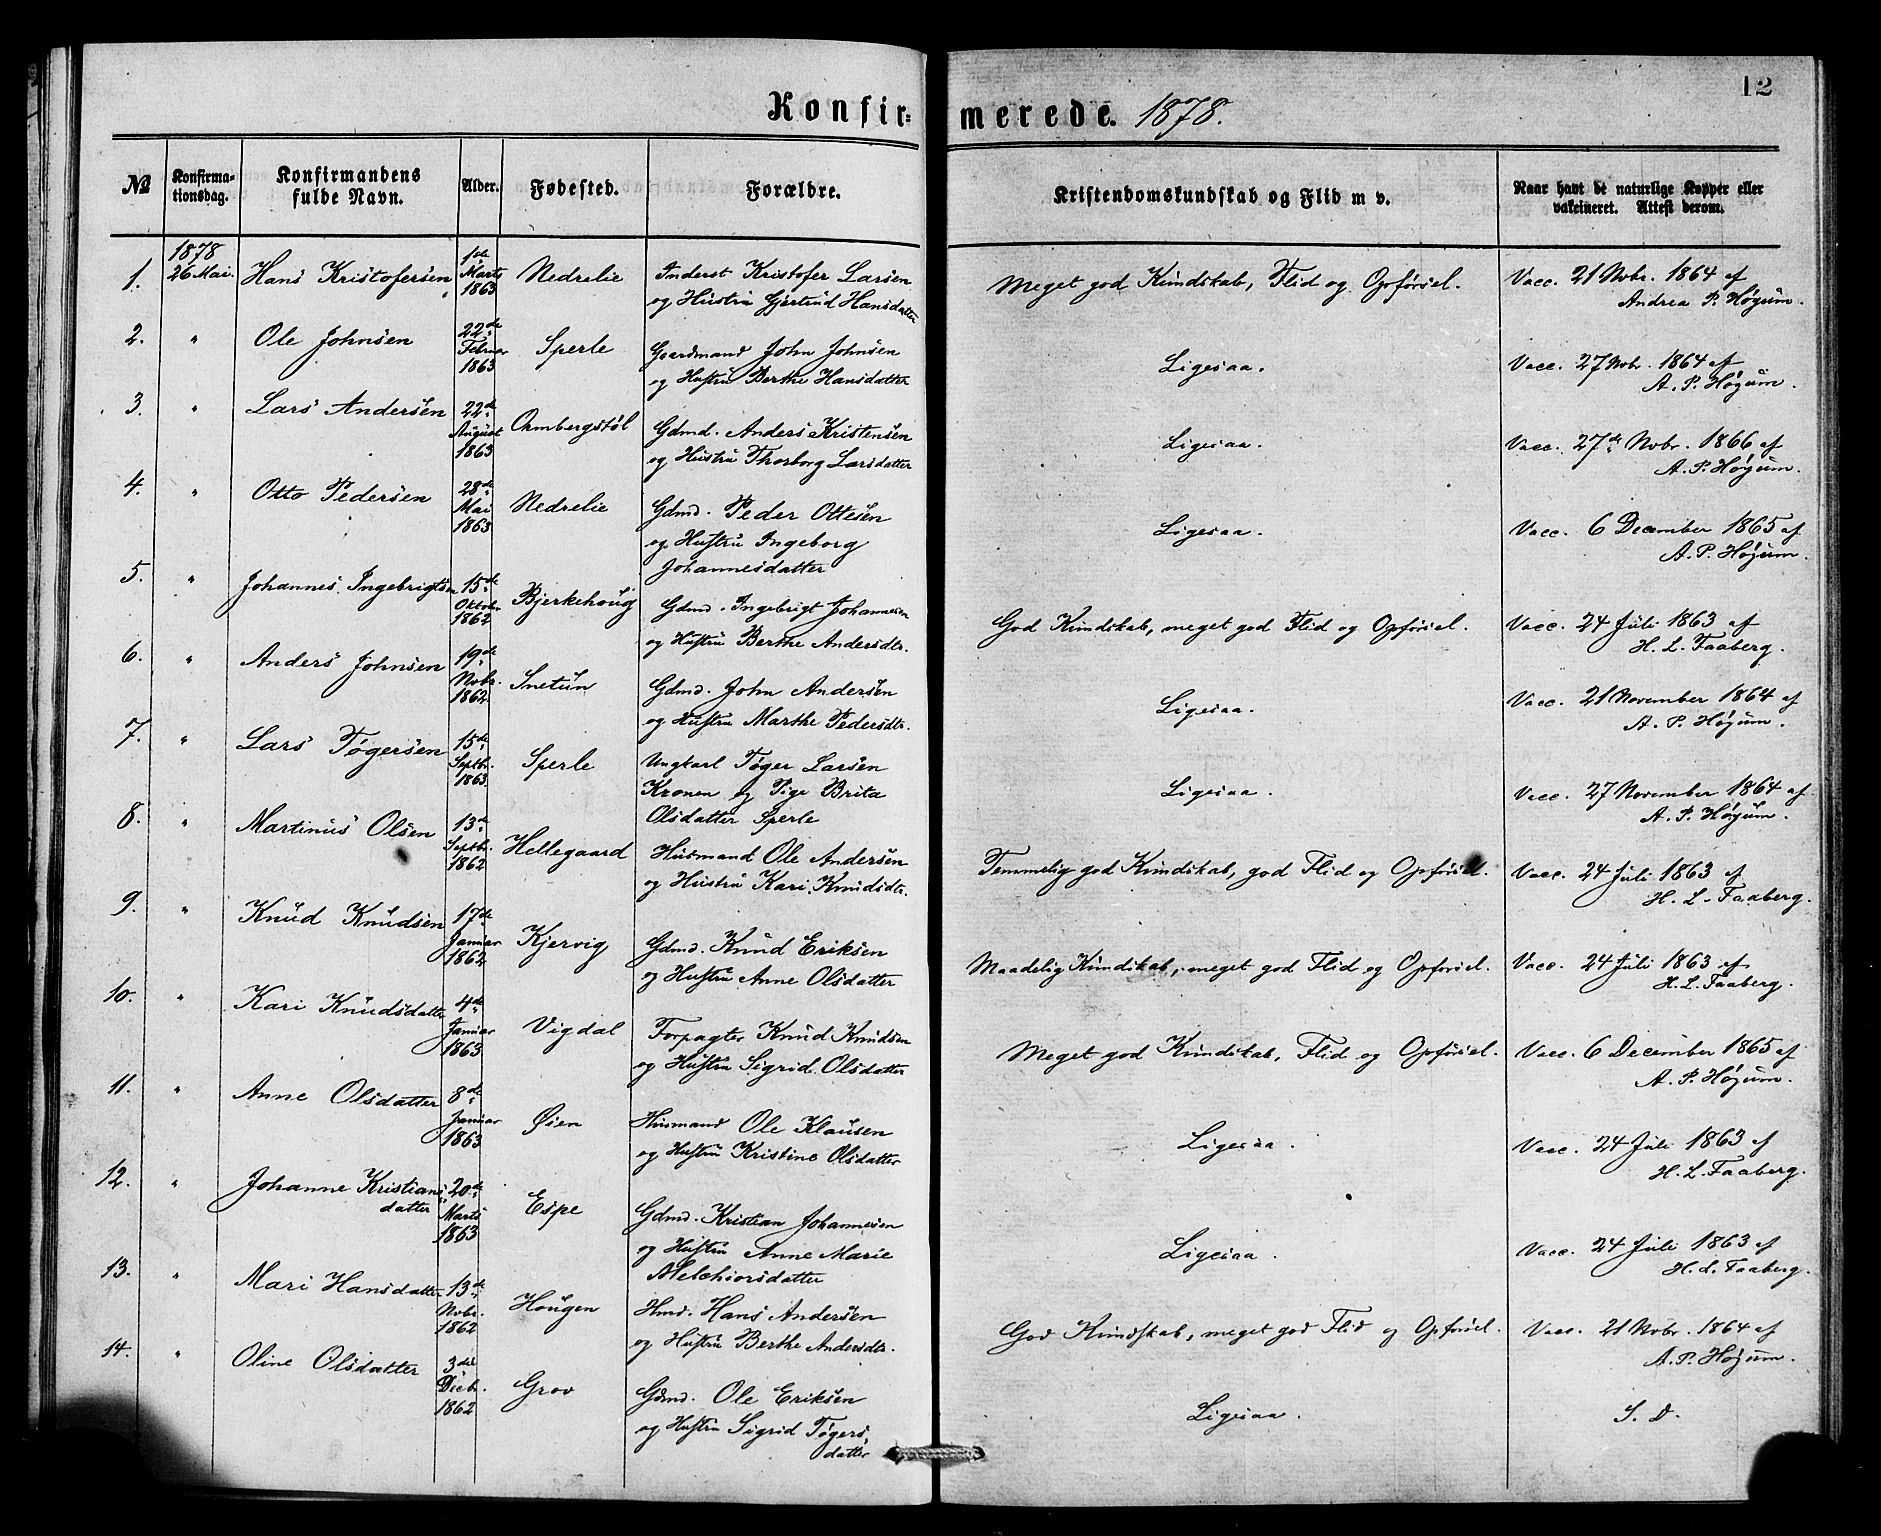 Konfir=merede. 1878.
12
№ Konfirma-tionsdag. Konfirmandens fulde Navn. Alder. Fødested. Forældre. Kristendomskundskab og Flid m v. Naar havt de naturlige Kopper eller vakcineret. Attest derom.
1878
1. 26 Mai. Hans Kristofersen 1ste Marts 1863 Nedrelie Inderst Kristofer Larsen Meget god Kundskab, Flid og Opførsel. Vacc. 21 Nobr. 1864 af
og Hustru Gjertrud Hansdatter Andrea P. Høgum.
2. " Ole Johnsen 22de Februar 1863 Sperle Gaardmand John Johnsen Ligesaa. Vacc. 27 Nobr. 1864 af
og Hustru Berthe Hansdatter A. P. Høgum.
3. " Lars Andersen 22de August 1863 Ommbergstøl Gdmd. Anders Kristensen Ligesaa. Vacc. 27de Nobr. 1866 af
og Hustru Thorborg Larsdatter A. P. Høgum.
4. " Otto Pedersen 28de Mai 1863 Nedrelie Gdmd. Peder Ottesen Ligesaa. Vacc. 6 December 1865 af
og Hustru Ingeborg A. P. Høgum.
Johannesdatter
5. " Johannes Ingebrigtsen 15de Oktobr. 1862 Bjerkehoug Gdmd. Ingebrigt Johannesen God Kundskab, meget god Flid og Opførsel. Vacc. 24 Juli 1863 af
og Hustru Berthe Andersdtr. H. L. Faaberg.
6. " Anders Johnsen 19de Nobr. 1862 Snetun Gdmd. John Andersen Ligesaa. Vacc. 21 November 1864 af
og Hustru Marthe Pedersdtr. A. P. Høgum.
7. " Lars Tøgersen 15de Septbr. 1863 Sperle Ungkarl Tøger Larsen Ligesaa. Vacc. 27 November 1864 af
Kronen og Pige Brita A. P. Høgum.
Olsdatter Sperle
8. " Martinus Olsen 13de Septbr. 1862 Hellegaard Husmand Ole Andersen Temmelig god Kundskab, god Flid og Opførsel. Vacc. 24 Juli 1863 af
og Hustru Kari Knudsdtr. H. L. Faaberg.
9. " Knud Knudsen 17de Januar 1862 Kjervig Gdmd. Knud Eriksen Maadelig Kundskab, meget god Flid og Opførsel. Vacc. 24 Juli 1863 af
og Hustru Anne Olsdatter H. L. Faaberg.
10. " Kari Knudsdatter 4de Januar 1863 Vigdal Forpagter Knud Knudsen Meget god Kundskab, Flid og Opførsel. Vacc. 6 December 1865 af
og Hustru Sigrid Olsdatter A. P. Høgum.
11. " Anne Olsdatter 8de Januar 1863 Øien Husmand Ole Klausen Ligesaa. Vacc. 24 Juli 1863 af
og Hustru Kristine Olsdatter H. L. Faaberg.
12. " Johanne Kristiansdatter 20de Marts 1863 Espe Gdmd. Kristian Johannesen Ligesaa. Vacc. 24 Juli 1863 af
og Hustru Anne Marie H. L. Faaberg.
Melchiorsdatter
13. " Mari Hansdatter 13de Nobr. 1862 Hougen Hmd. Hans Andersen God Kundskab, meget god Flid og Opførsel. Vacc. 21 Nobr. 1864 af
og Hustru Berthe Andersdtr. A. P. Høgum.
14. " Oline Olsdatter 3die Decbr. 1862 Grov Gdmd. Ole Eriksen Ligesaa. S. D.
og Hustru Sigrid Tøgers
datter